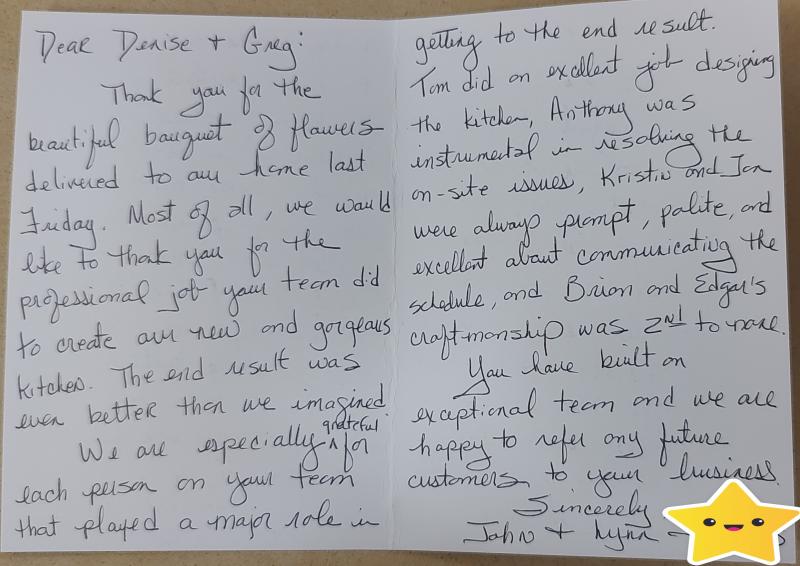 Dear Denise + Greg:
Thank you for the
beautiful bouquet of flowers
delivered to our home last
Friday. Most of all, we would
like to thank you for the
professional job your team did
to create our new and gorgeous
kitchen. The end result was
even better than we imagined.
We are especially grateful for
each person on your team
that played a major role in
getting to the end result.
Tom did an excellent job designing
the kitchen, Anthony was
instrumental in resolving the
on-site issues, Kristin and Jon
were always prompt, polite, and
excellent about communicating the
schedule, and Brian and Edgar's
craftmanship was 2nd to none.
You have built an
exceptional team and we are
happy to refer any future
customers to your business.
Sincerely
John + Lynn